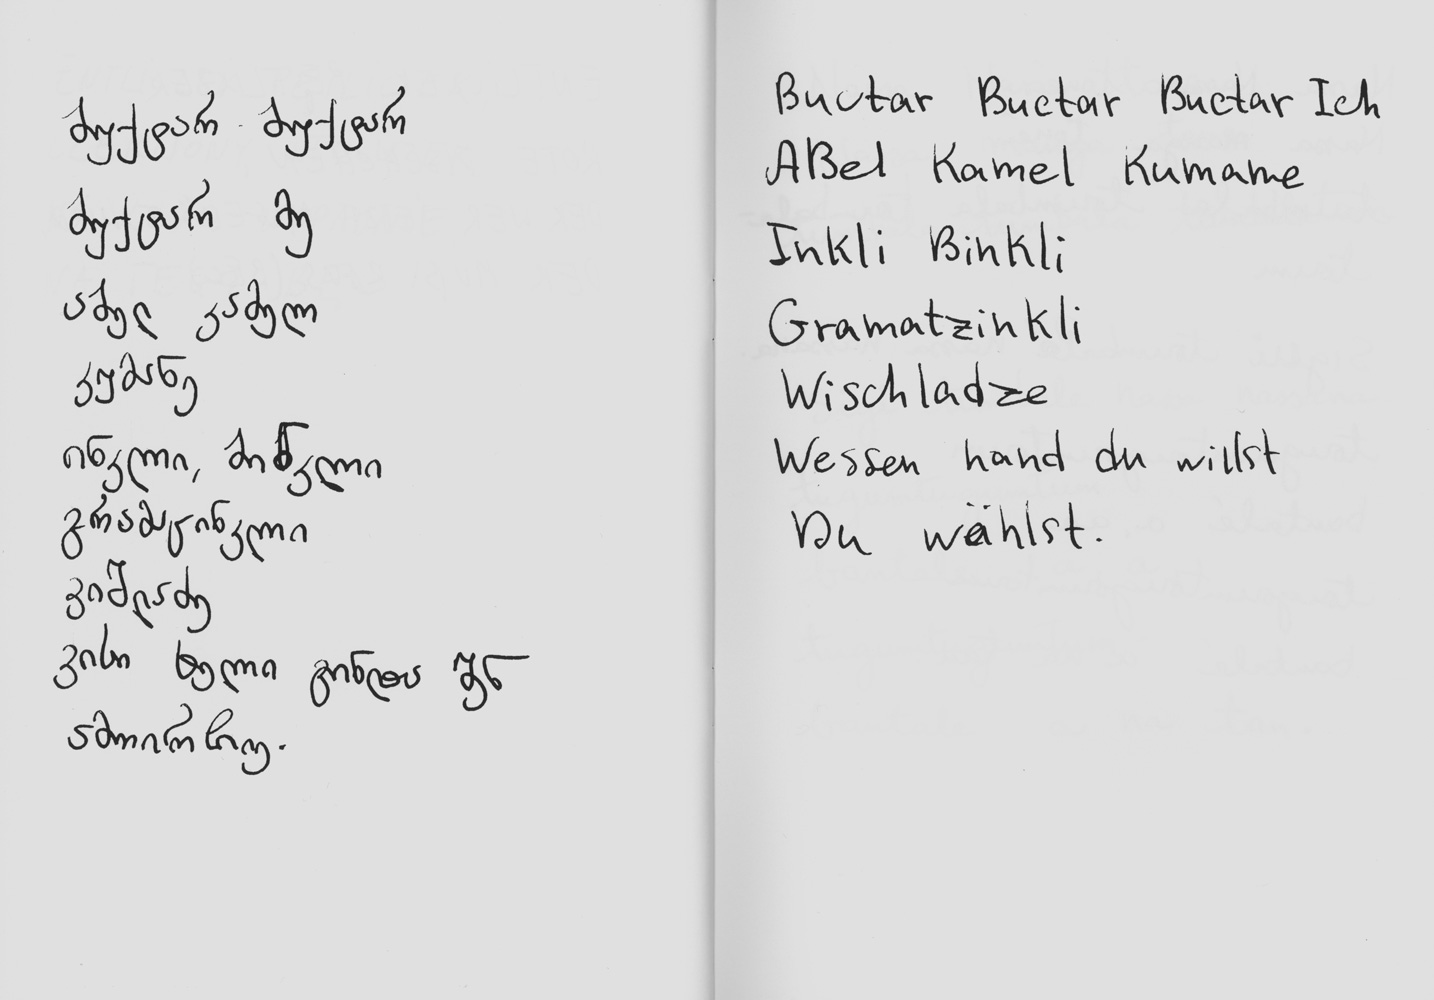 ბუქტარ ბუქტარ
ბუქტარ მე
აბელ კამელ
კუმანე
ინკლი, ბინკლი
გრამატინკლი
ვიშლაძე
ვისი ხელი გინდა შენ
ამოირჩიე.
Buctar Buctar Buctar Ich
ABel Kamel Kumame
Inkli Binkli
Gramatzinkli
Wischladze
Wessen hand du willst
Du wählst.